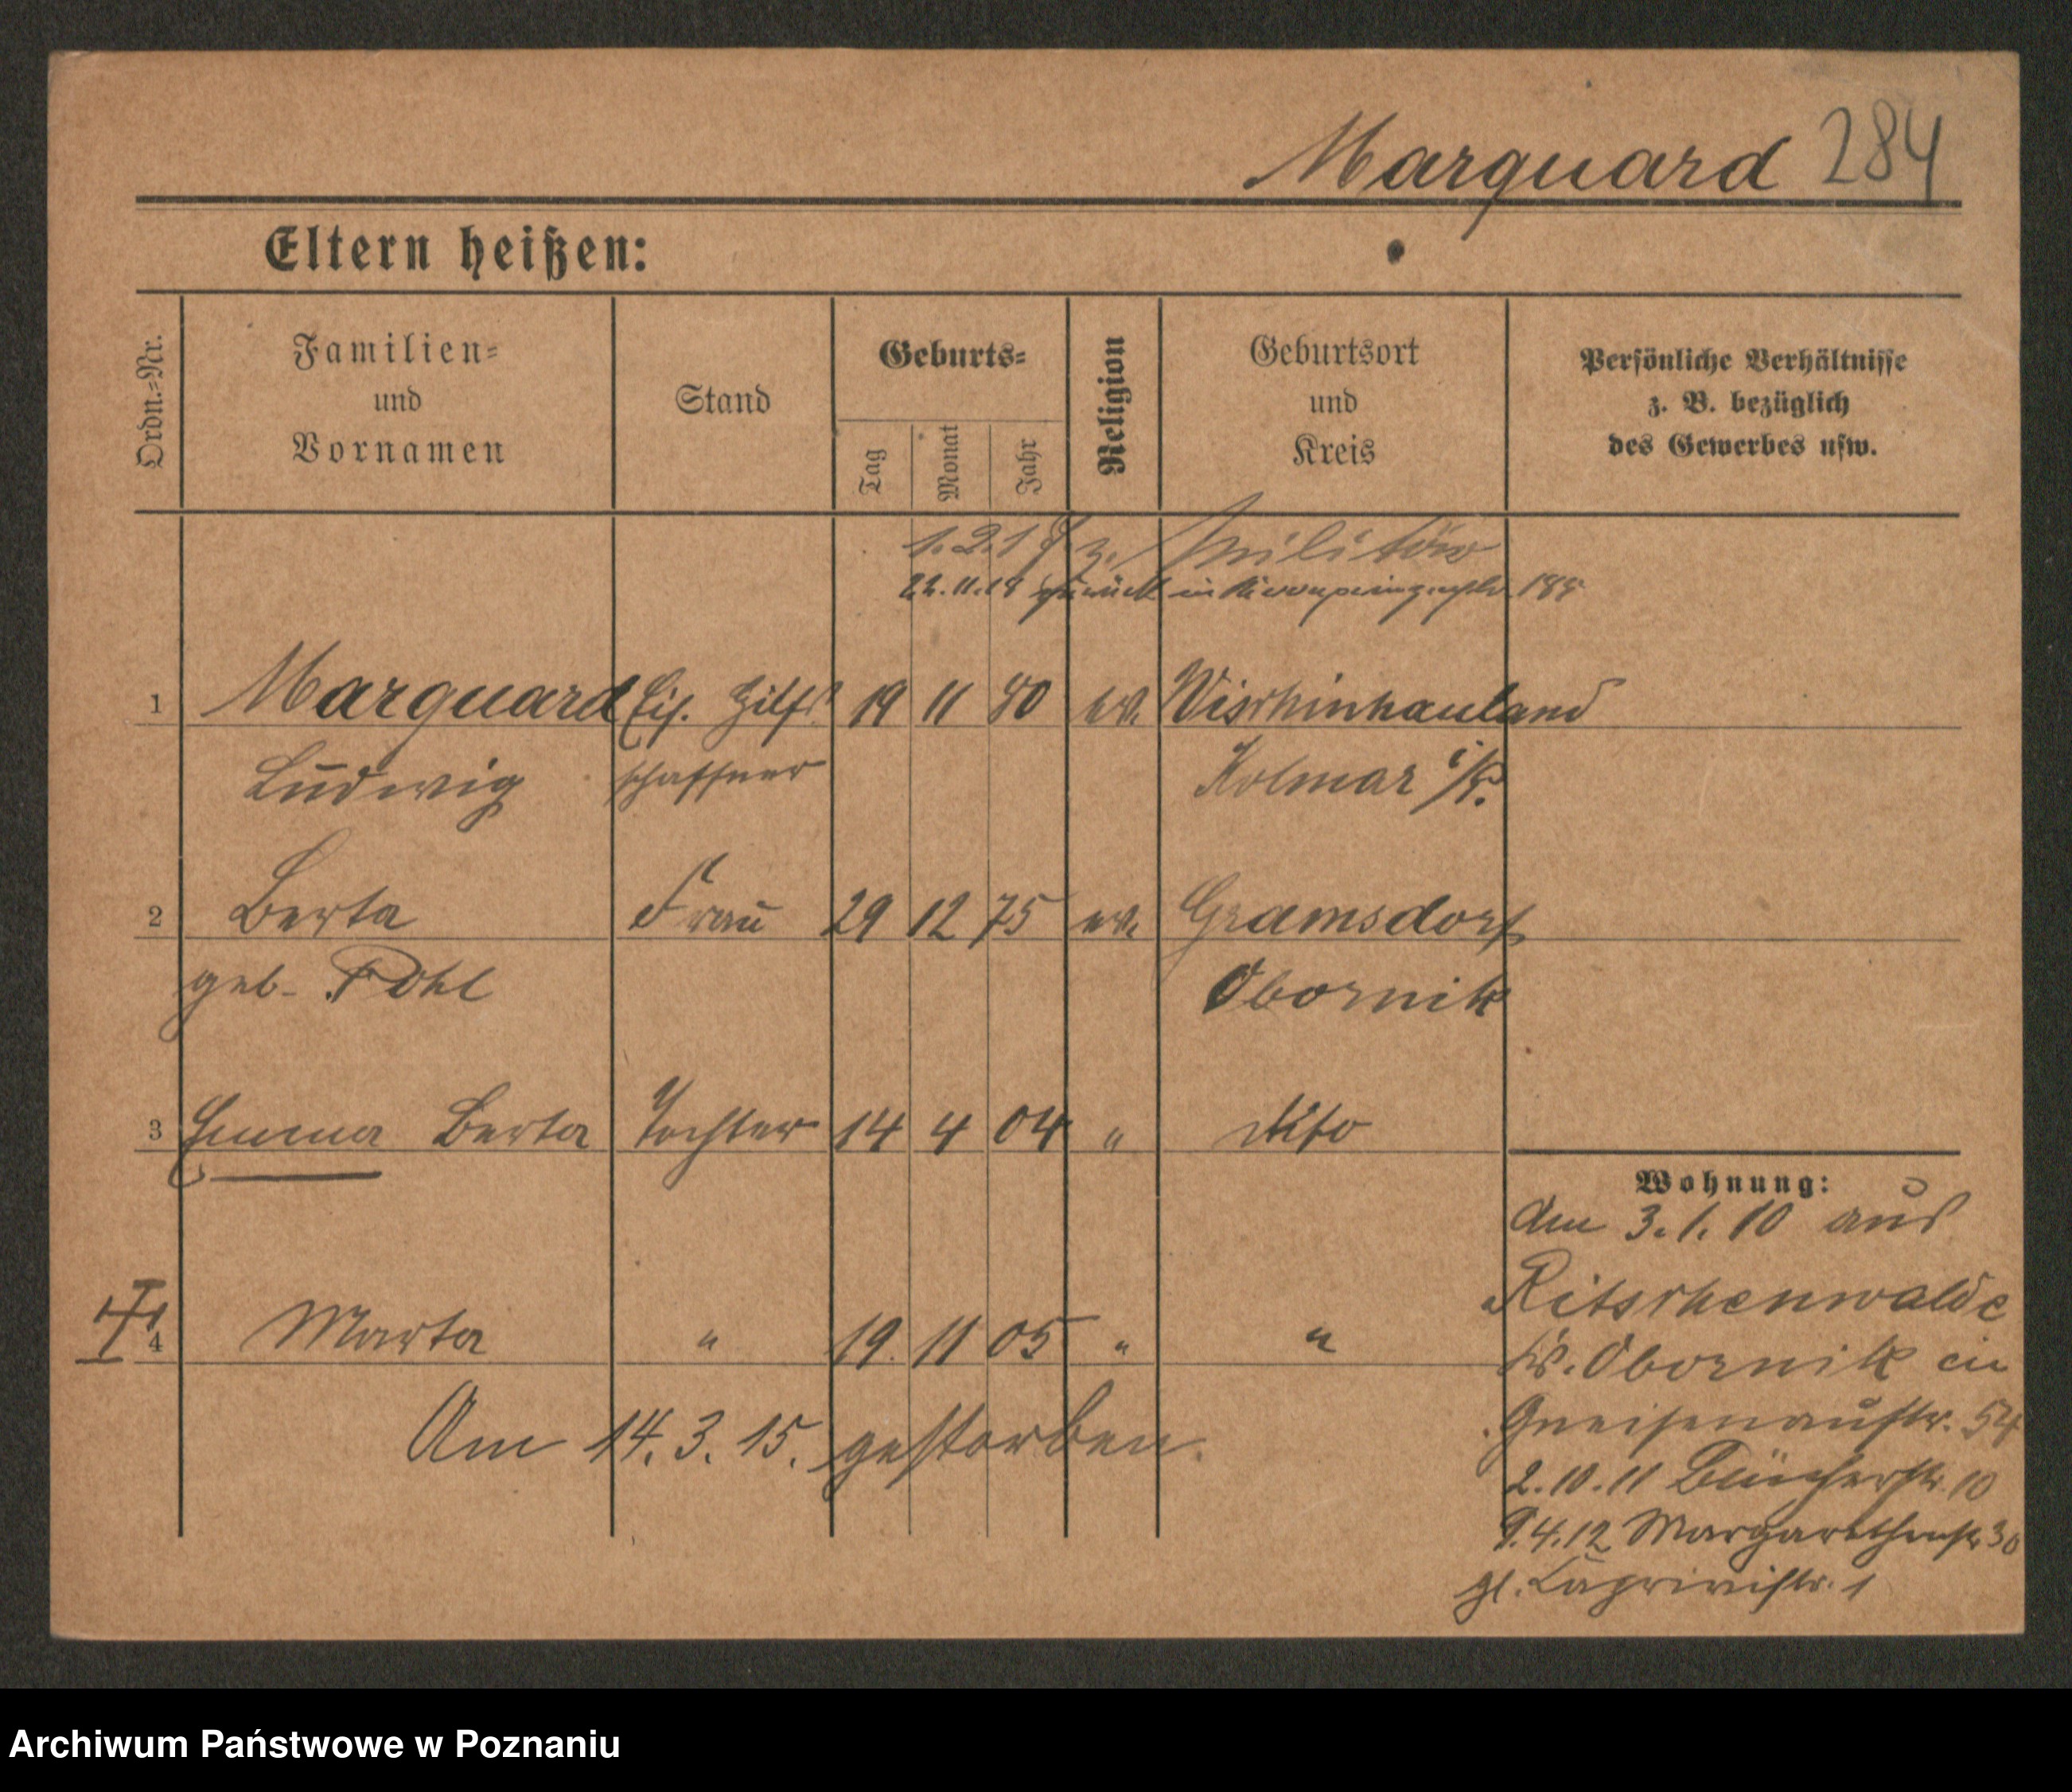 Marquard 284
Eltern heißen:
Ordn.=Nr.
Familien=
und
Vornamen
Stand
Geburts=
Tag
Monat
Jahr
Religion
Geburtsort
und
Kreis
Persönliche Verhältnisse
z. B. bezüglich
des Gewerbes usw.
z. Militär
22.11.18 zurück in
1 Marquard Eis. Hilfs 19 11 80 ev. Wischinhauland
Ludwig schaffner Kolmar i/P.
2 Berta Frau 29 12 75 ev. Gramsdorf
geb. Pohl Obornik
3 Emma Berta Tochter 14 4 04 " dito
4 Marta " 19. 11 05 " "
Am 14. 3. 15. gestorben.
Wohnung:
Am 3. 1. 10 aus
Ritschenwalde
Kr. Obornik in
Gneisenaustr. 54
2.10.11 Blücherstr. 10
9.4.12 Margarethenstr 30
gl. Caprivistr. 1
Archiwum Państwowe w Poznaniu